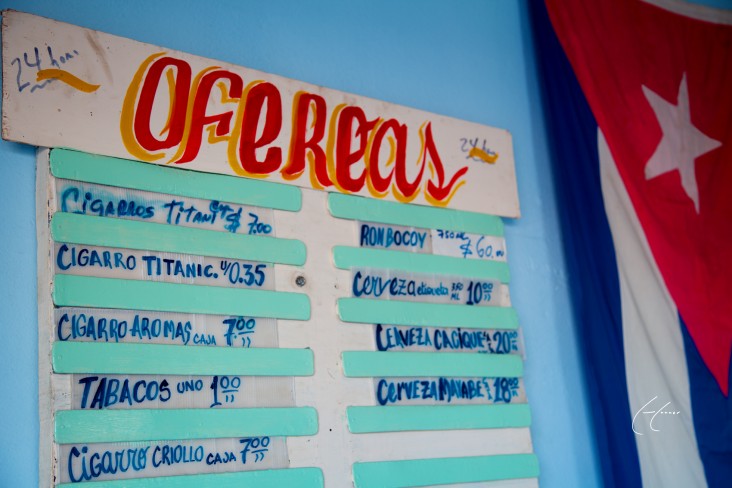 24 hora
Ofereas
24 hora
Cigarros Titani $ 7.00
Cigarro Titanic. U/ 0.35
Cigarro Aromas caja 7.00
Tabacos uno 1.00
Cigarro Criollo caja 7.00
Ron Bocoy 750 ML $ 60.00
Cerveza etiqueta ML 10.00
Cerveza Cacique 20.00
Cerveza Mayabe 18.00